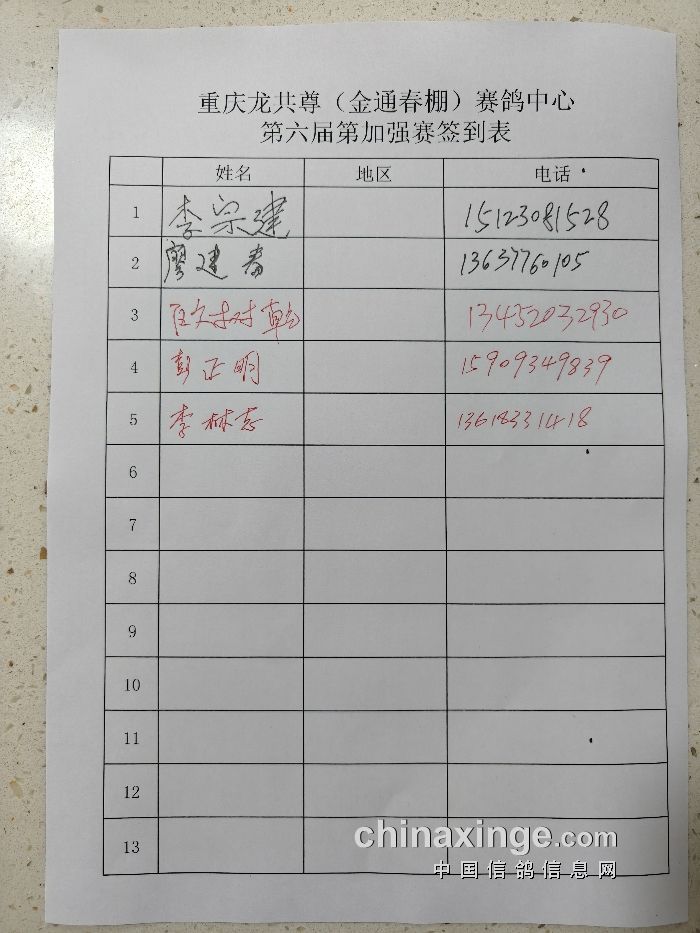 重庆龙共尊（金通春棚）赛鸽中心
第六届第加强赛签到表
姓名 地区 电话
1 李宗建 15123081528
2 廖建春 13637760105
3 13452032930
4 彭正明 15909349839
5 李林志 13618331418
6
7
8
9
10
11
12
13
chinaxinge.com
中国信鸽信息网